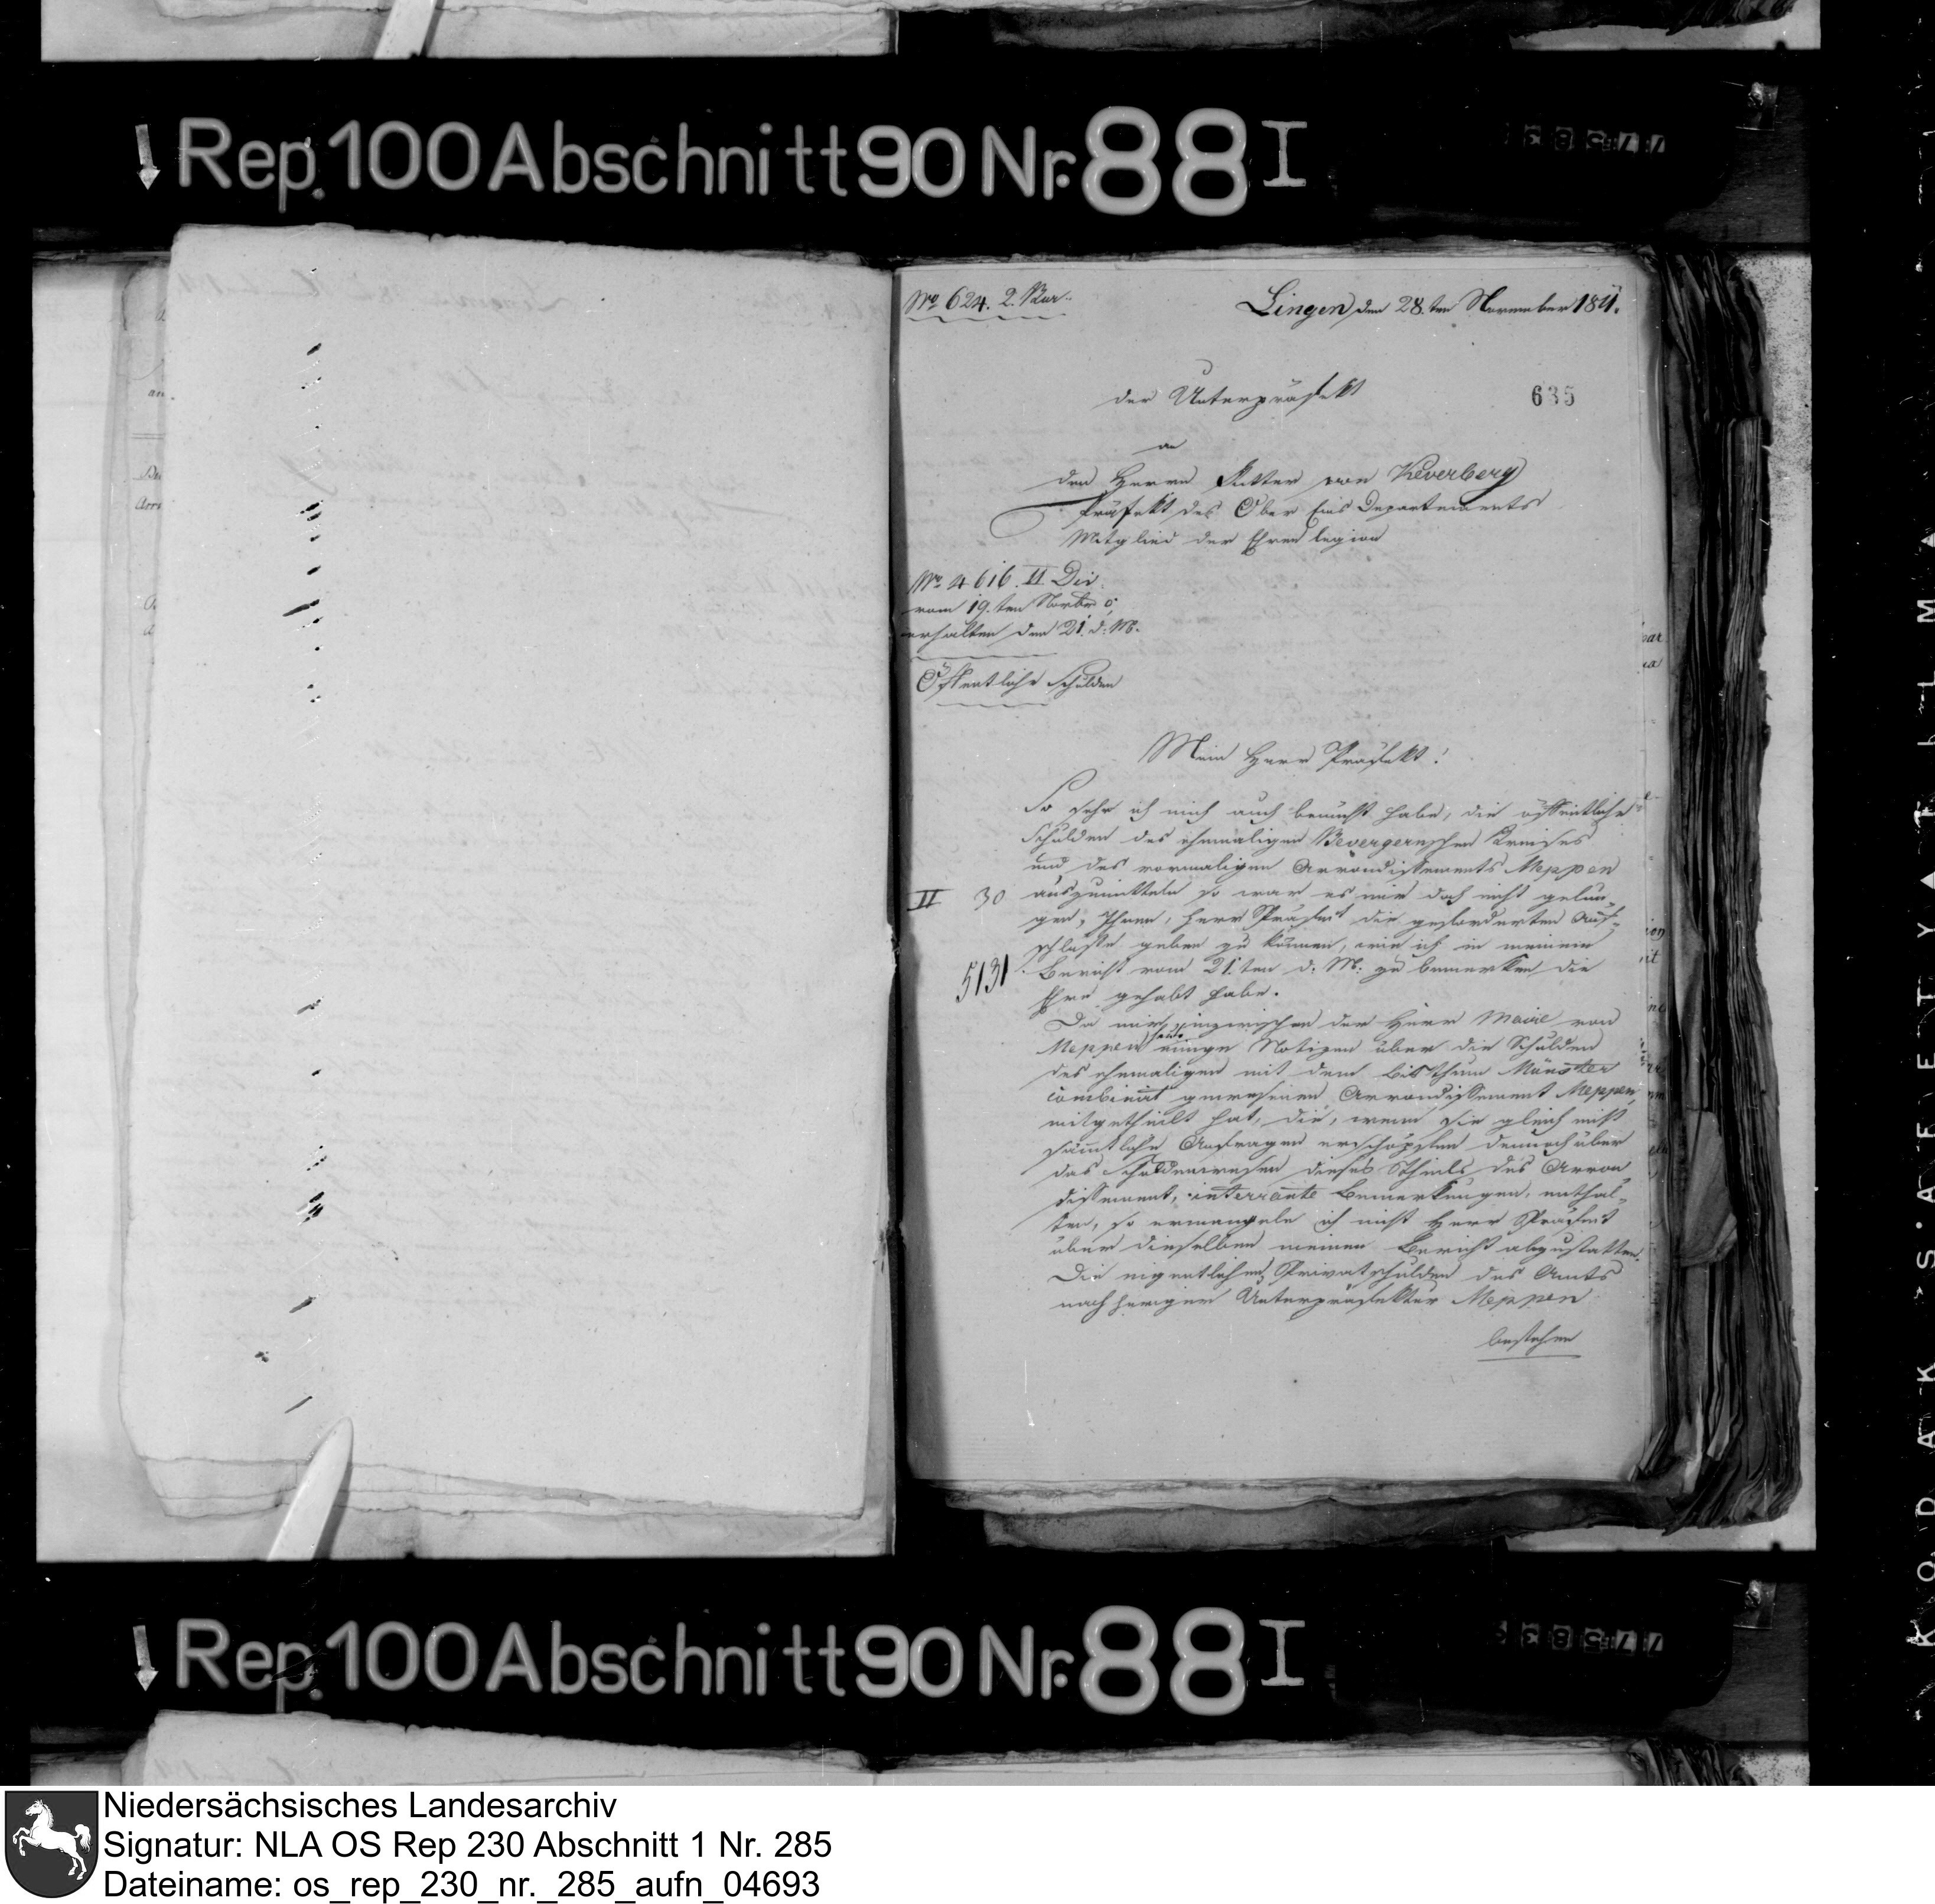 Rep. 100 Abschnitt 90 Nr. 88 I
No 624. 2. Bur.
Lingen den 28.ten November 1811.
der Unterpräfekt
635
an
den Herrn Ritter von Keverberg
Präfekt des Ober Ems Departements
Mitglied der Ehren legion
No 4616. II Div.
vom 19.ten Novbr
erhalten den 21. d. M.
Öffentliche Schulden
Mein Herr Präfekt!
So sehr ich mich auch bemüht habe, die öffentliche
Schulden des ehemaligen Bevergernschen Kreises
und des vormaligen Arrondissements Meppen
II 30
auszumitteln so war es mir doch nicht gelun-
gen, Ihnen, Herr Präfect die geforderten Auf-
schlüße geben zu können, wie ich in meinem
5131
Bericht vom 21.ten d. M. zu bemerken die
Ehre gehabt habe.
Da mir inzwischen der Herr Maire von
Meppen einige Notizen über die Schulden
des ehemaligen mit dem Bisthum Münster
combinirt gewesenen Arrondissement Meppen,
mitgetheilt hat, die, wenn sie gleich nicht
sämmtliche Anfragen erschöpfen dennoch über
das Schuldenwesen dieses Theils des Arron
dissement, Bemerkungen, enthal-
ten, so ermangele ich nicht Herr Präfect
über dieselben meinen Bericht abzustatten.
Die eigentlichen Privatschulden des Amts
nachheriger Unterpräfektur Meppen
bestehen
Rep. 100 Abschnitt 90 Nr. 88 I
Niedersächsisches Landesarchiv
Signatur: NLA OS Rep 230 Abschnitt 1 Nr. 285
Dateiname: os_rep_230_nr._285_aufn_04693